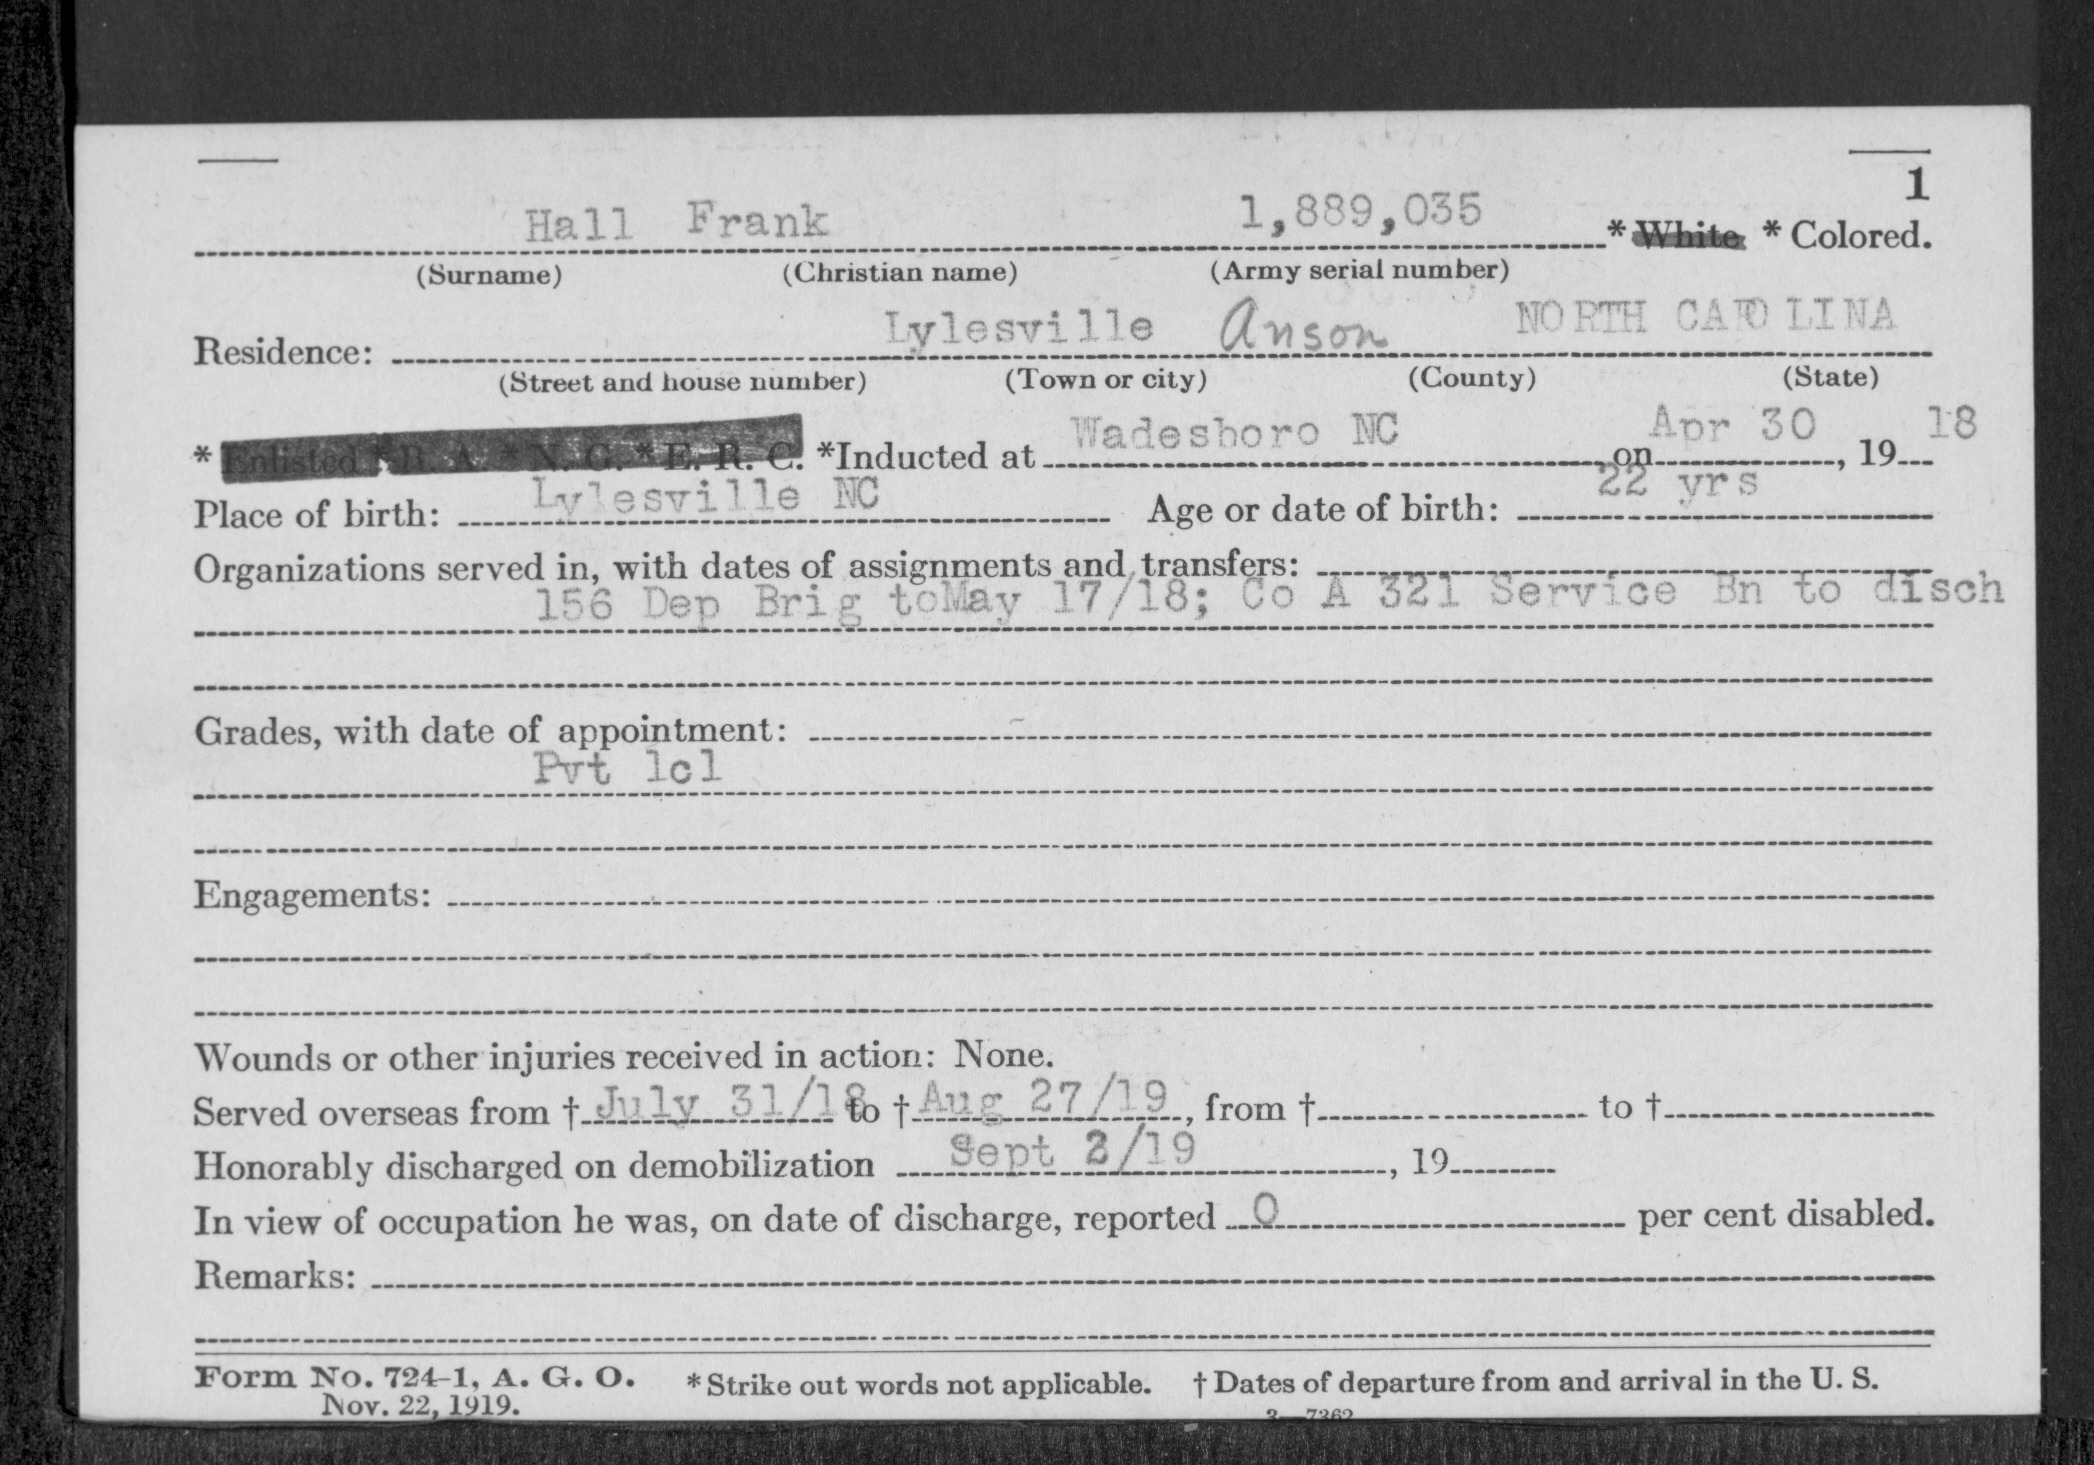 1
Hall Frank 1,889,035 * White * Colored.
(Surname) (Christian name) (Army serial number)
Residence: Lylesville Anson NORTH CAROLINA
(Street and house number) (Town or city) (County) (State)
* Enlisted * R. A. * N. G. * E. R. C. *Inducted at Wadesboro NC on Apr 30, 19 18
Place of birth: Lylesville NC Age or date of birth: 22 yrs
Organizations served in, with dates of assignments and transfers:
156 Dep Brig toMay 17/18; Co A 321 Service Bn to disch
Grades, with date of appointment:
Pvt 1cl
Engagements:
Wounds or other injuries received in action: None.
Served overseas from † July 31/18 to † Aug 27/19, from † to †
Honorably discharged on demobilization Sept /19, 19
In view of occupation he was, on date of discharge, reported 0 per cent disabled.
Remarks:
Form No. 724-1, A. G. O. * Strike out words not applicable. † Dates of departure from and arrival in the U. S.
Nov. 22, 1919. 3—7362